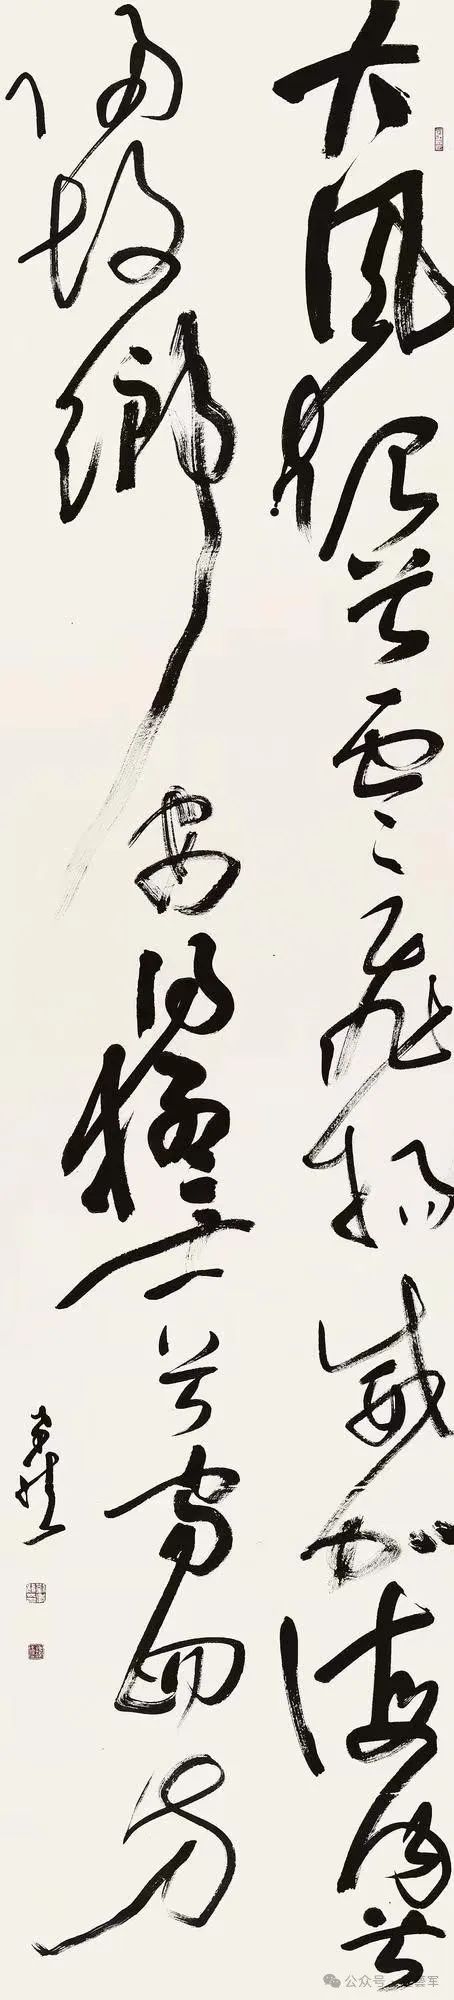 大風起兮雲飛揚威加海內兮
歸故鄉安得猛士兮守四方
公众号